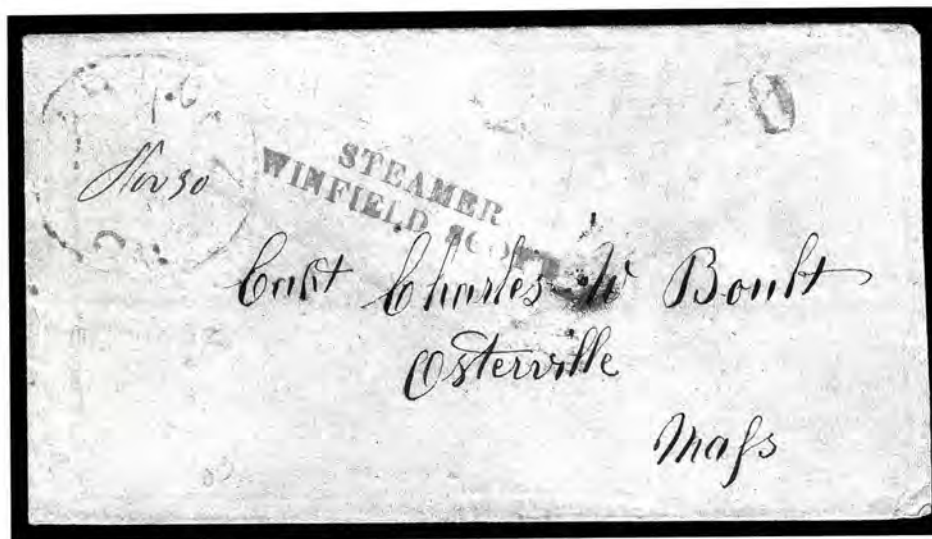 Nov 30
STEAMER
WINFIELD SCOTT
Capt Charles W Boult
Osterville
Mass